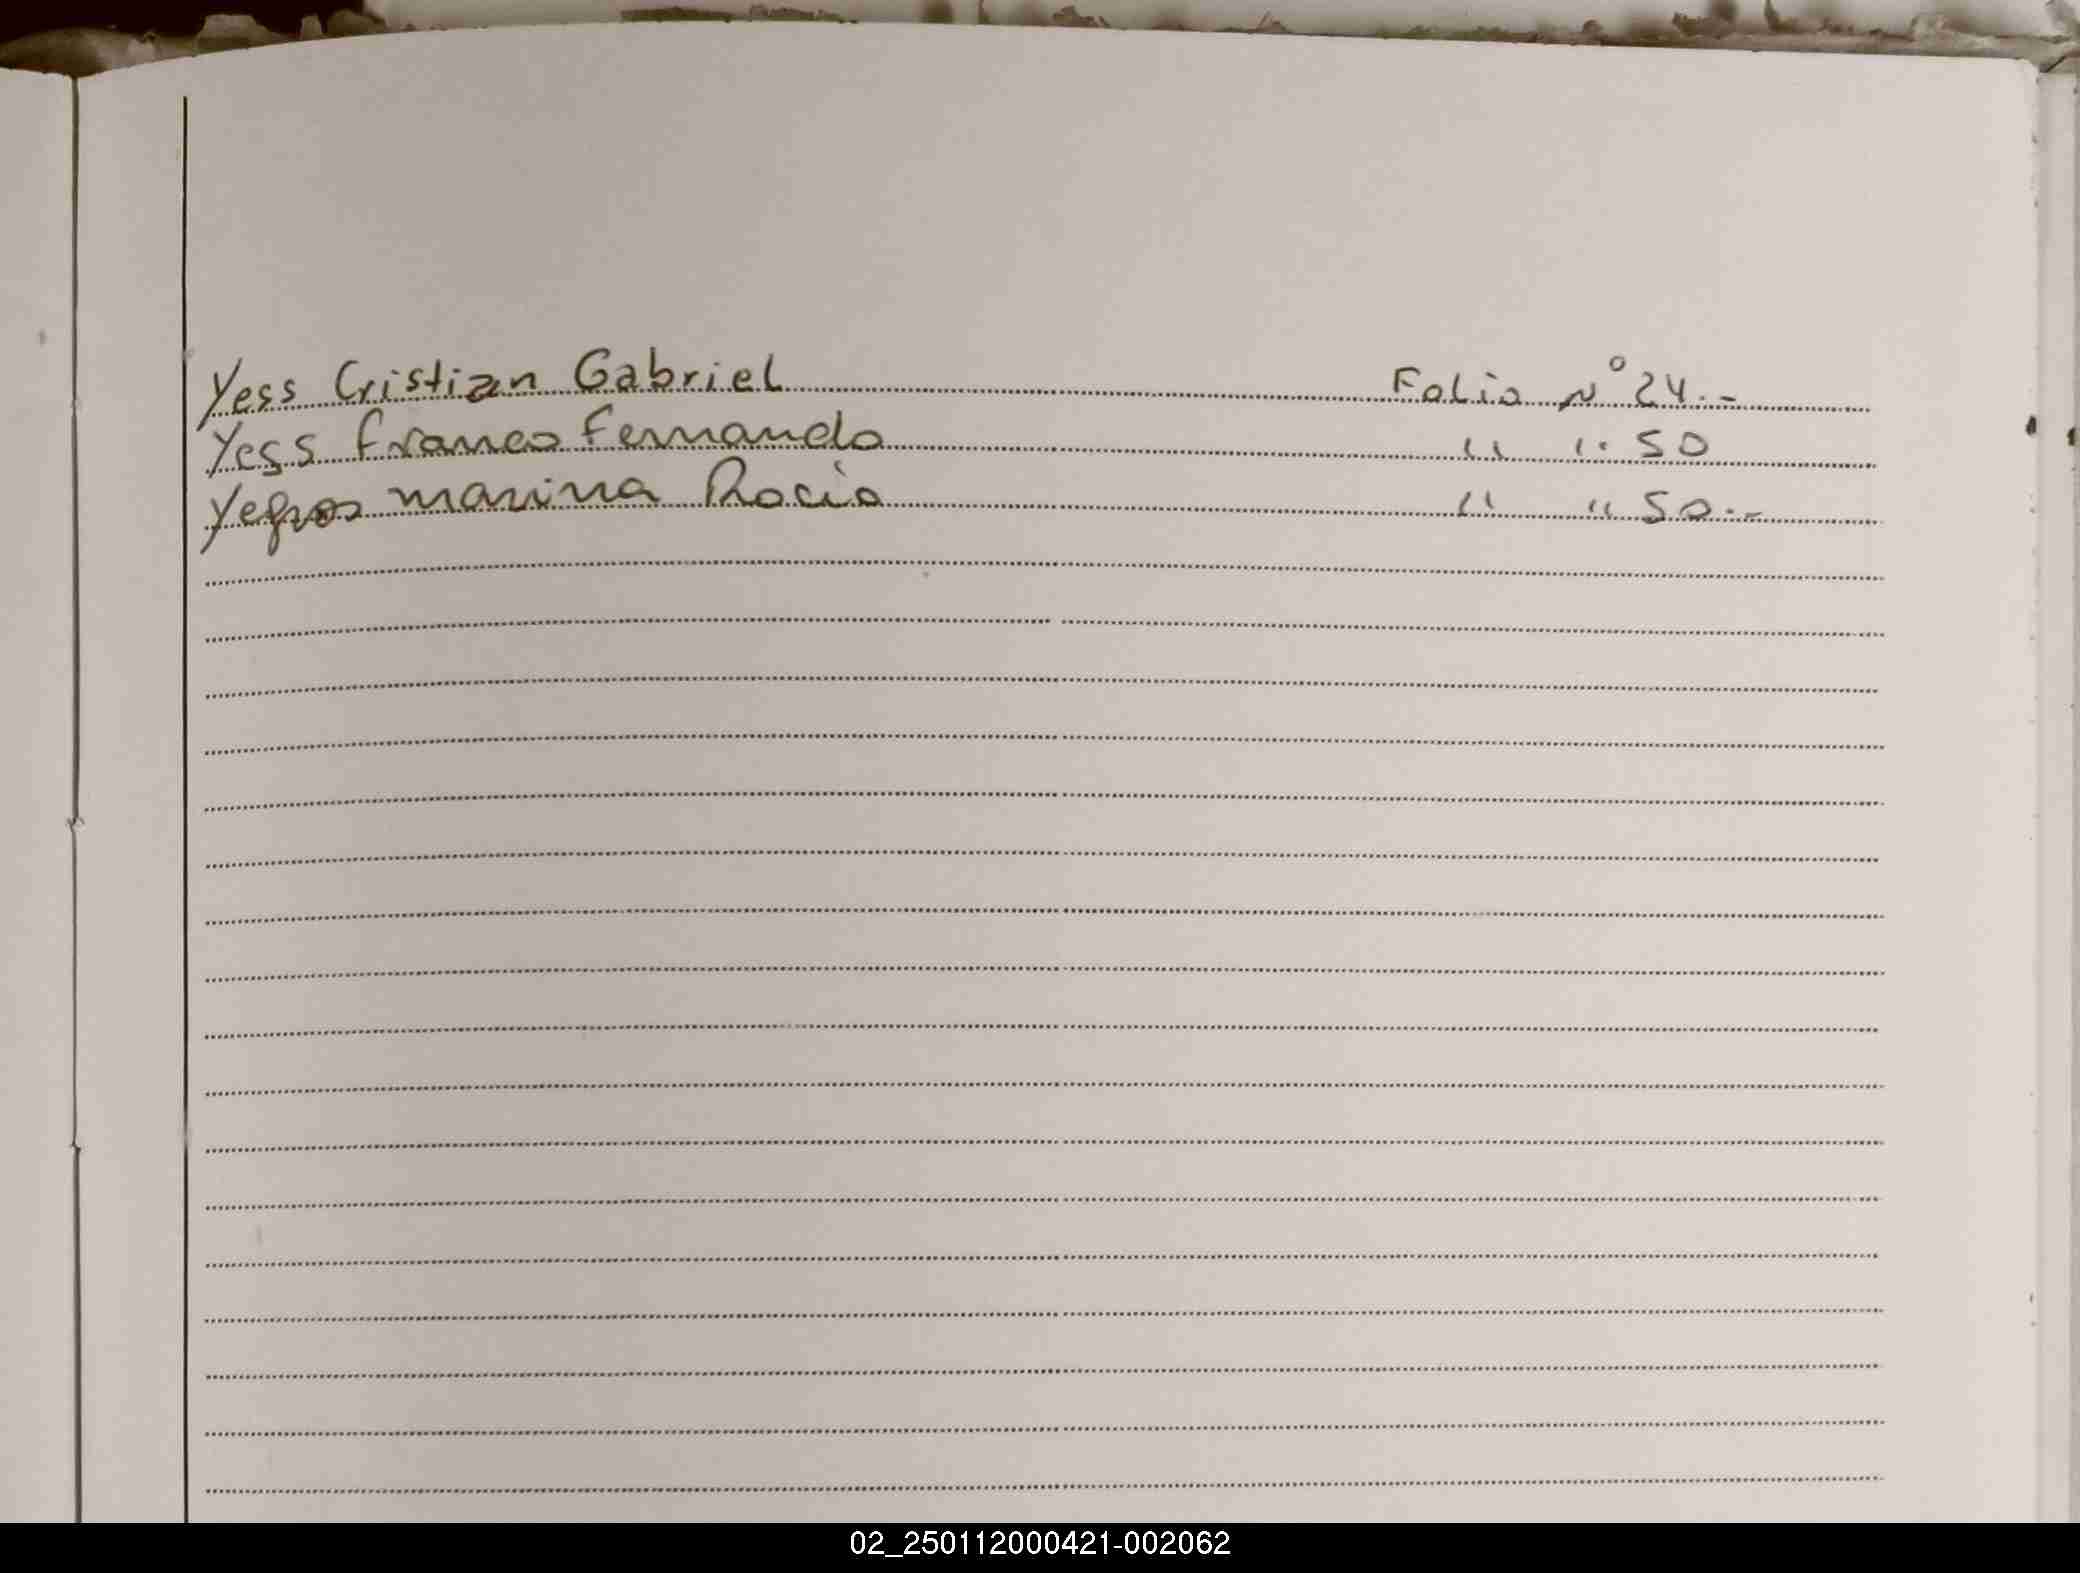 Yess Cristian Gabriel Folio N° 24.-
Yess Franco Fernando " " 50
Yegros Marina Rocio " " 50.-
02_250112000421-002062